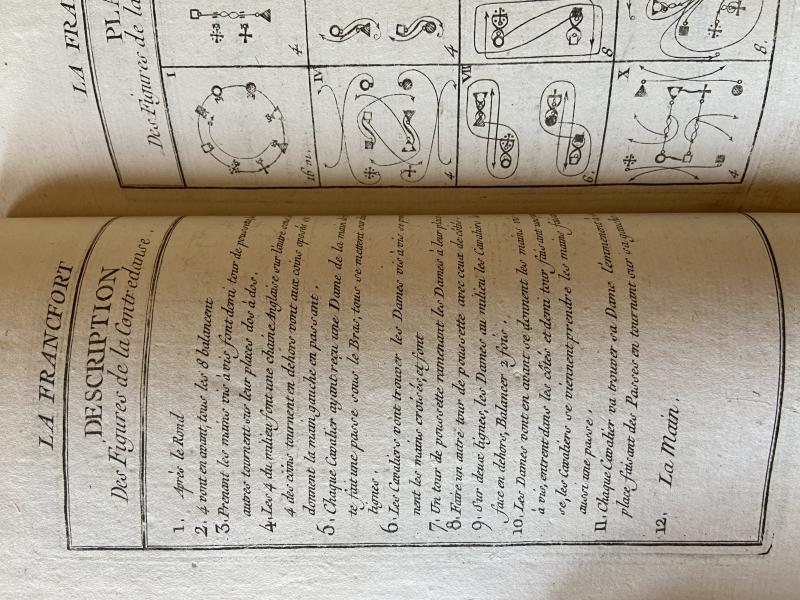 LA FRANCFORT
DESCRIPTION
Des Figures de la Contredanse.
1. Après le Rond
2. 4 vont en avant, tous les 8 balancent
3. Prenant les mains vis à vis font demi tour de
autres tournent sur leur places dos à dos.
4. Les 4 du milieu font une chaine Anglaise sur l'autre
4 des coins tournent en dehors vont aux coins
donnent la main gauche en passant.
5. Chaque Cavalier ayant reçu une Dame de la main
te fait une passe sous le Bras, tous se mettent sur
lignes.
6. Les Cavaliers vont trouver les Dames vis à vis
nent les mains croisées, et font
7. Un tour de poussette ramenant les Dames à leur
8. Faire un autre tour de poussette avec ceux de
9. Sur deux lignes, les Dames au milieu les Cavaliers
face en dehors, Balancer 2 fois.
10. Les Dames vont en avant se donnent les mains
à vis, entrent dans les côtés et demi tour faisant
se, les Cavaliers se viennent prendre les mains
aussi une passe.
11. Chaque Cavalier va trouver sa Dame l'emmenent
place faisant des Passes en tournant sur sa gauche
12. La Main.
LA FRA
PLA
Des Figures de la
I
16 m.
4
IV
4
4
VII
6.
8
X
4
8.